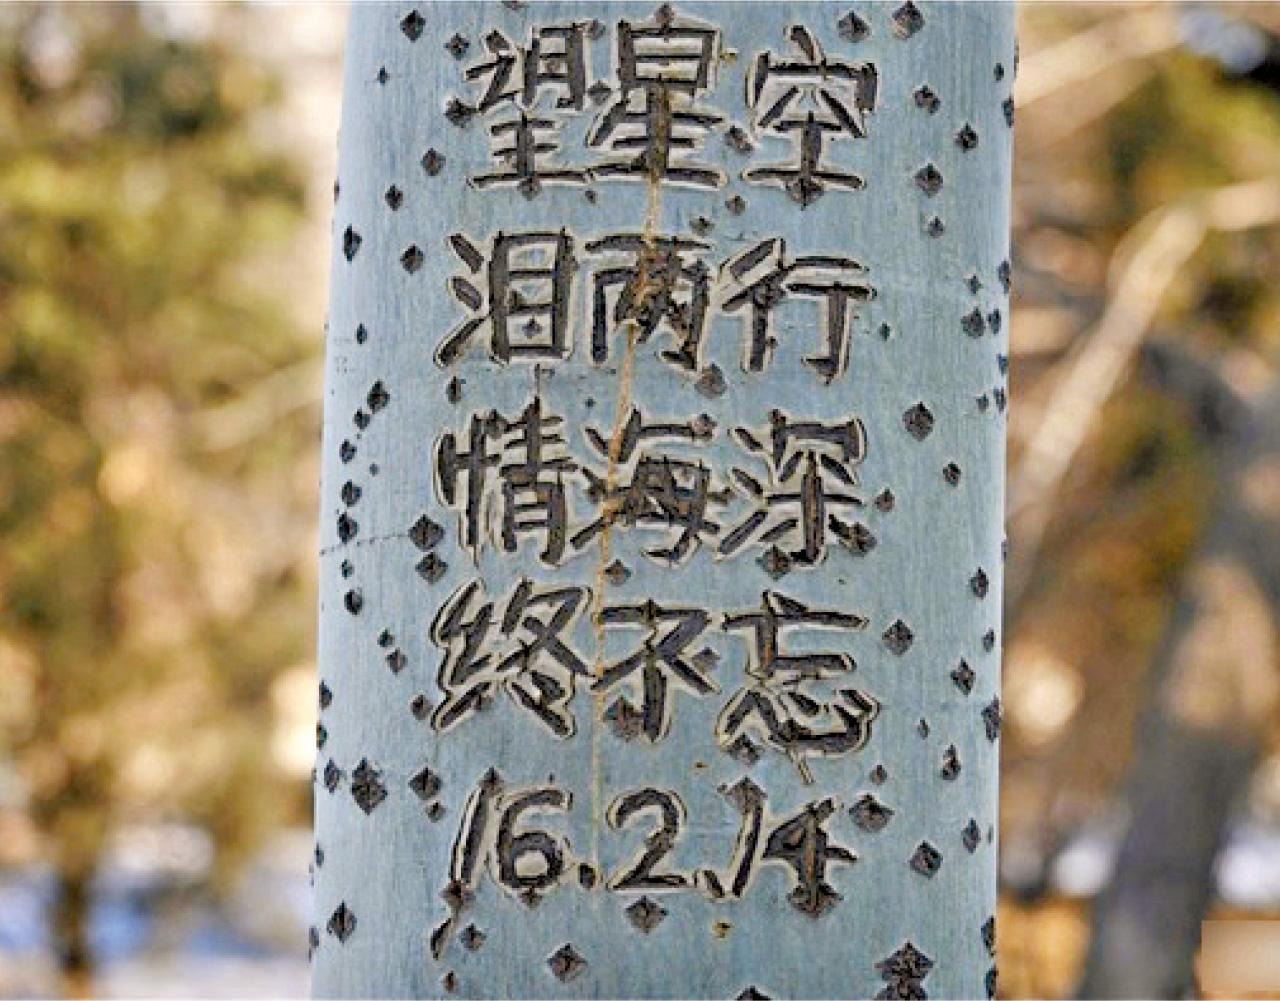 望星空
泪两行
情海深
终不忘
16.2.14